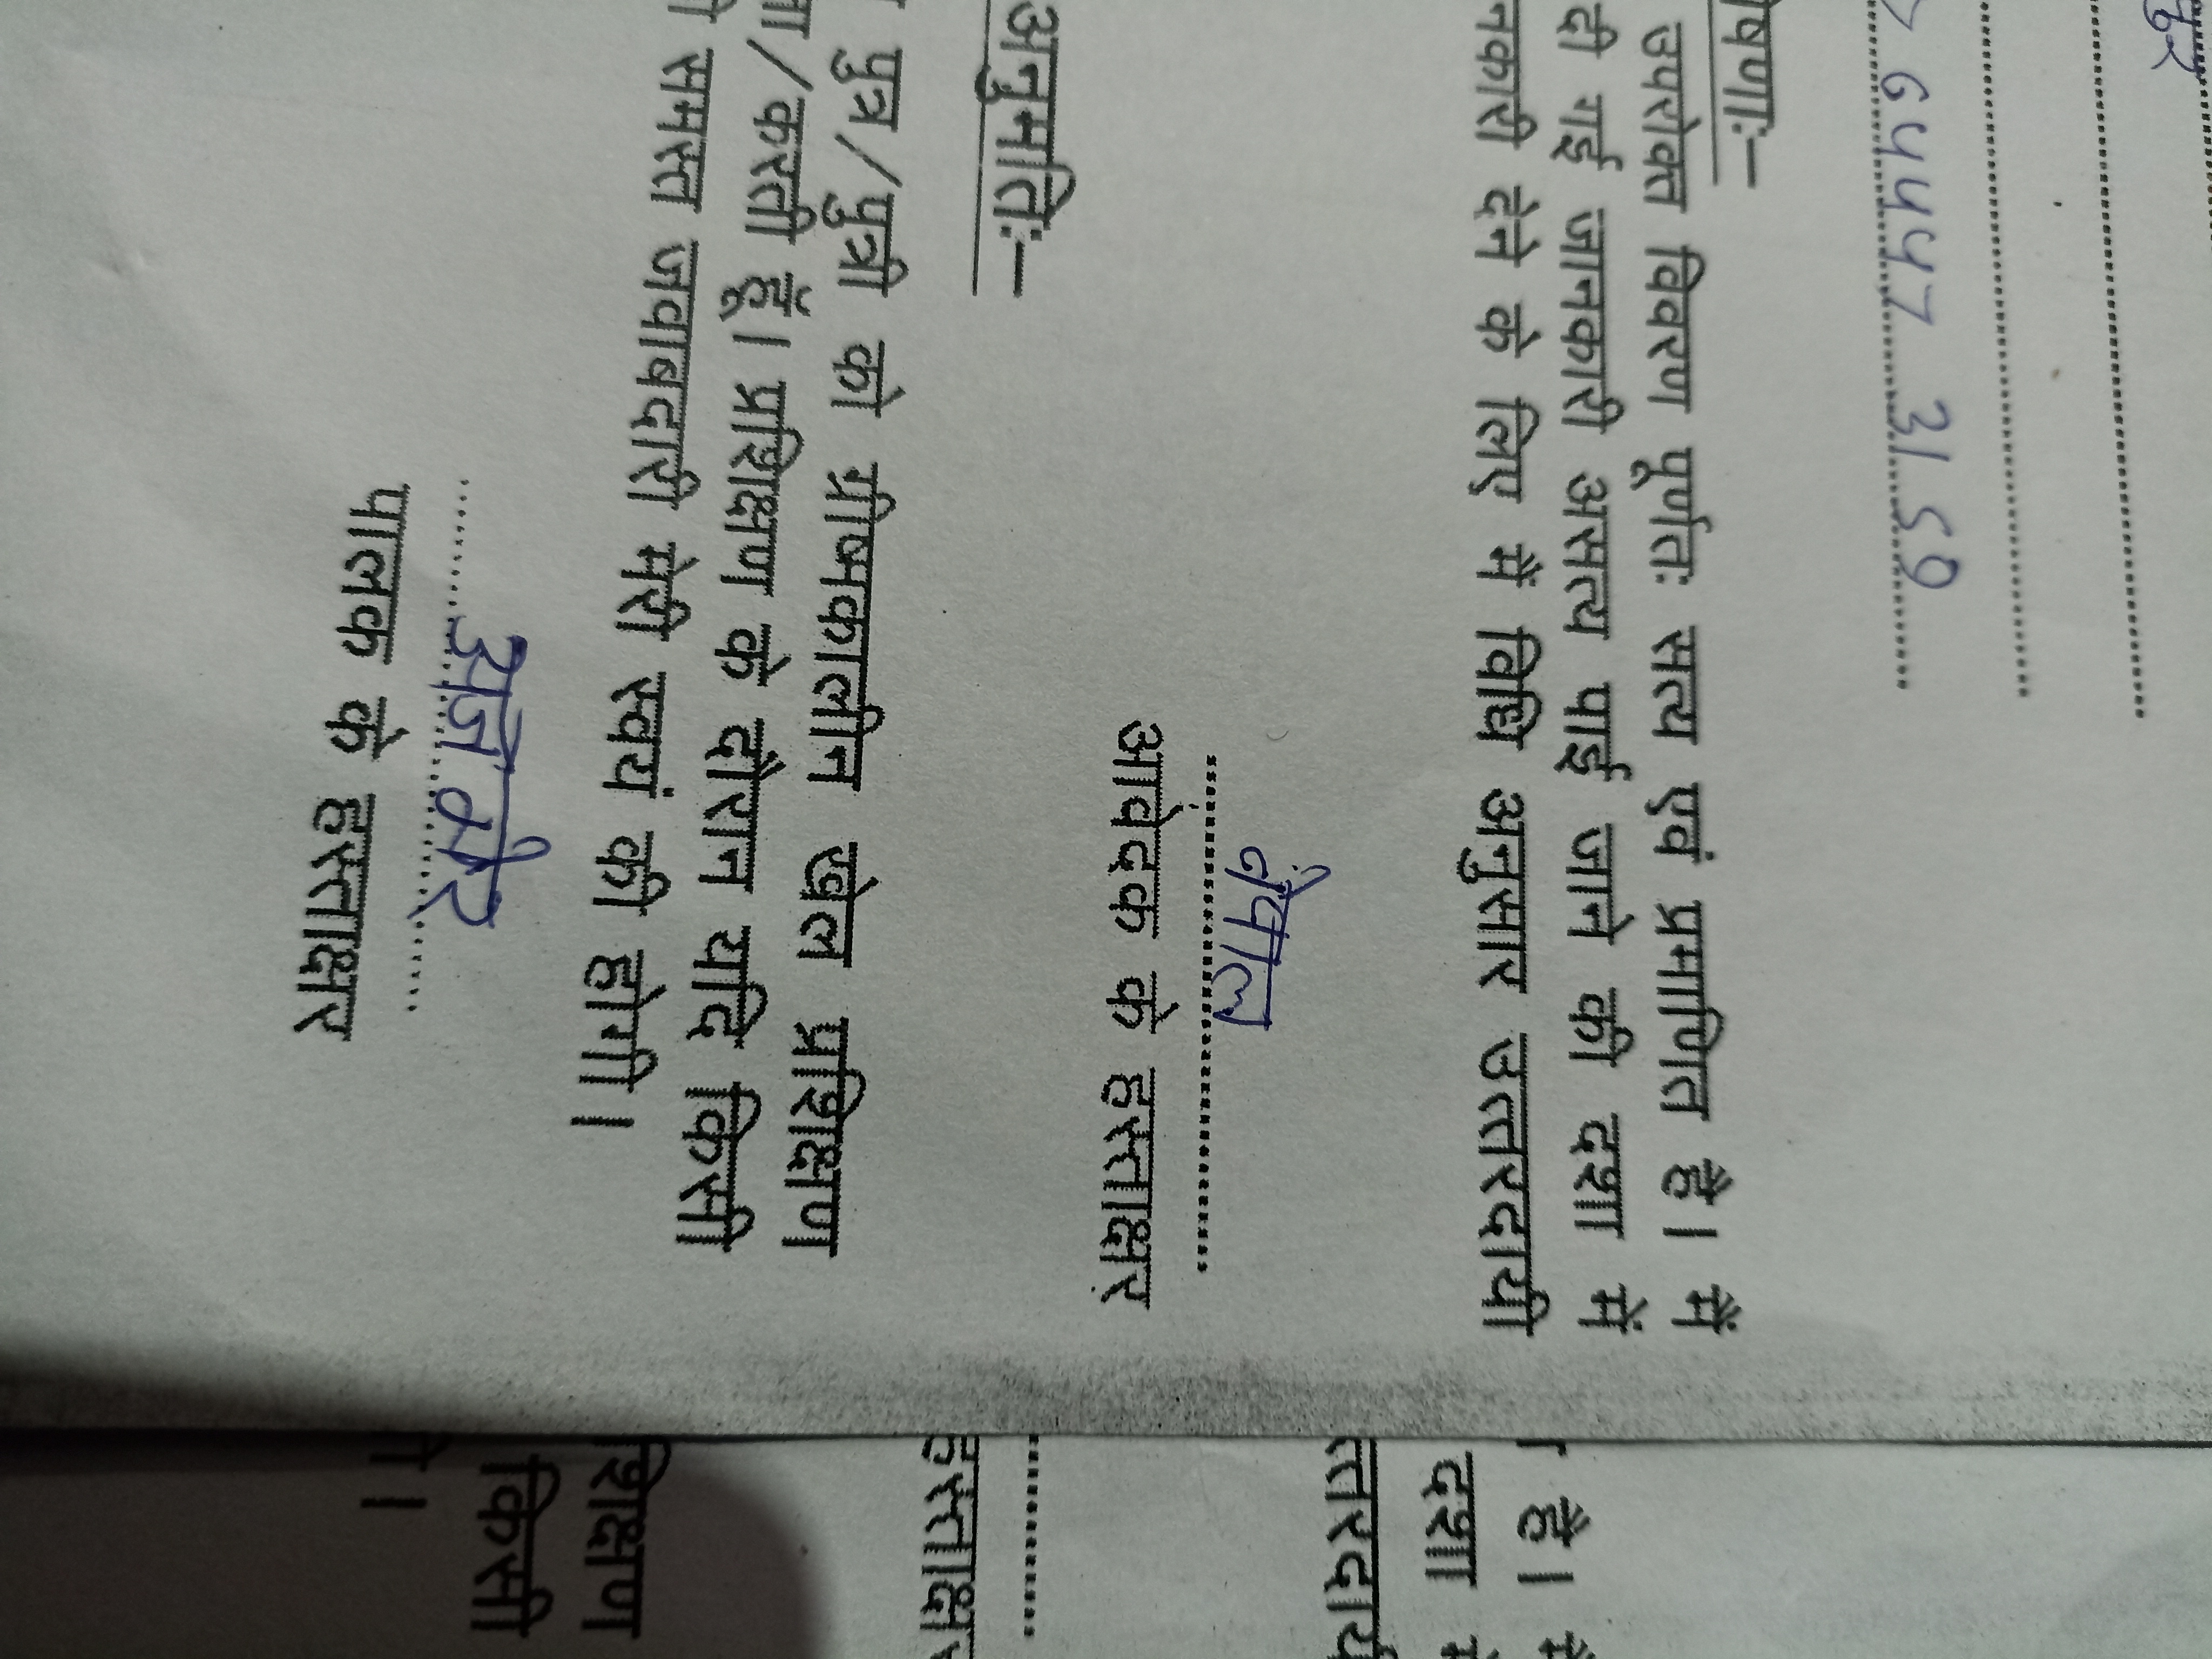 6445731569
उपरोक्त विवरण पूर्णतः सत्य एवं प्रमाणित है। मैं
दी गई जानकारी असत्य पाई जाने की दशा में
देने के लिए में विधि अनुसार उत्तरदायी
नेपाल
आवेदक के हस्ताक्षर
अनुमतिः–
पुत्र/पुत्री को ग्रीष्मकालीन खेल प्रशिक्षण
/करती हूँ। प्रशिक्षण के दौरान यदि किसी
समस्त जवाबदारी मेरी स्वयं की होगी।
पालक के हस्ताक्षर
है।
दशा
किसी